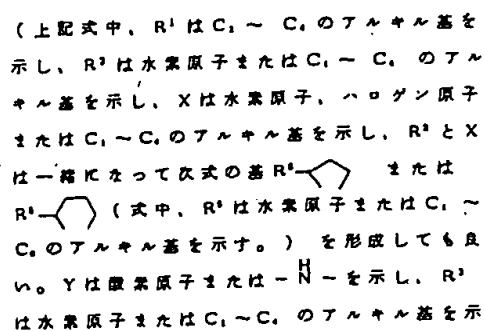 (上記式中、R¹はC₁～C₄のアルキル基を
示し、R²は水素原子またはC₁～C₄のアル
キル基を示し、Xは水素原子、ハロゲン原子
またはC₁～C₄のアルキル基を示し、R²とX
は一緒になって次式の基R⁵ または
R⁵ (式中、R⁵は水素原子またはC₁～
C₄のアルキル基を示す。)を形成しても良
い。Yは酸素原子または-NH-を示し、R³
は水素原子またはC₁～C₄のアルキル基を示